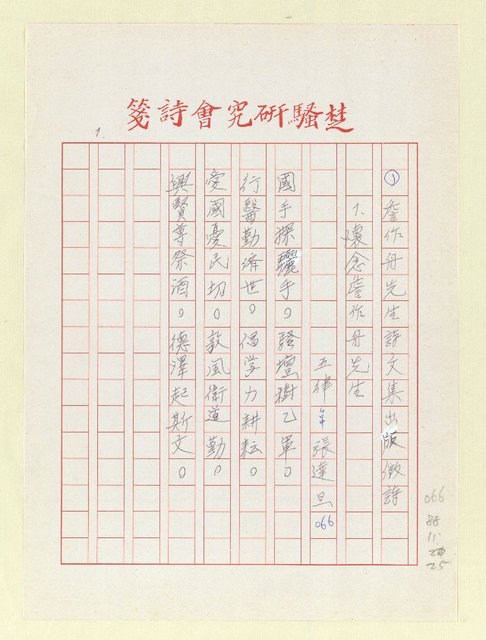 楚騷研究會詩箋
1.
①詹作舟先生詩文集出版徵詩
1、懷念詹作舟先生
五律 張達旦 066
國手探驪手。騷壇樹乙軍。
行醫勤濟世。倡学力耕耘。
愛國憂民切。敦風衛道勤。
興賢尊祭酒。德澤起斯文。
066
88
11.
25